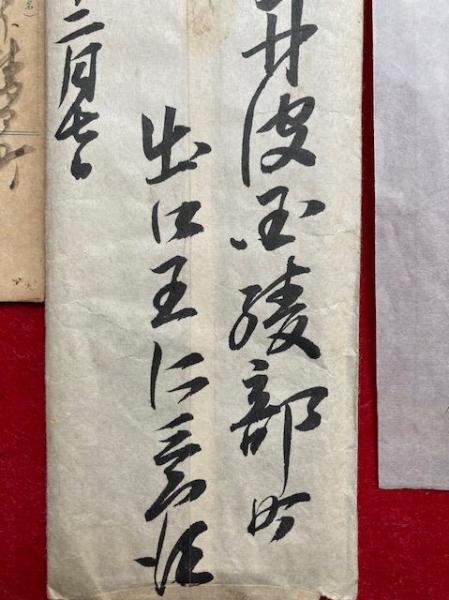 丹波国綾部町
出口王仁三郎
二月七日